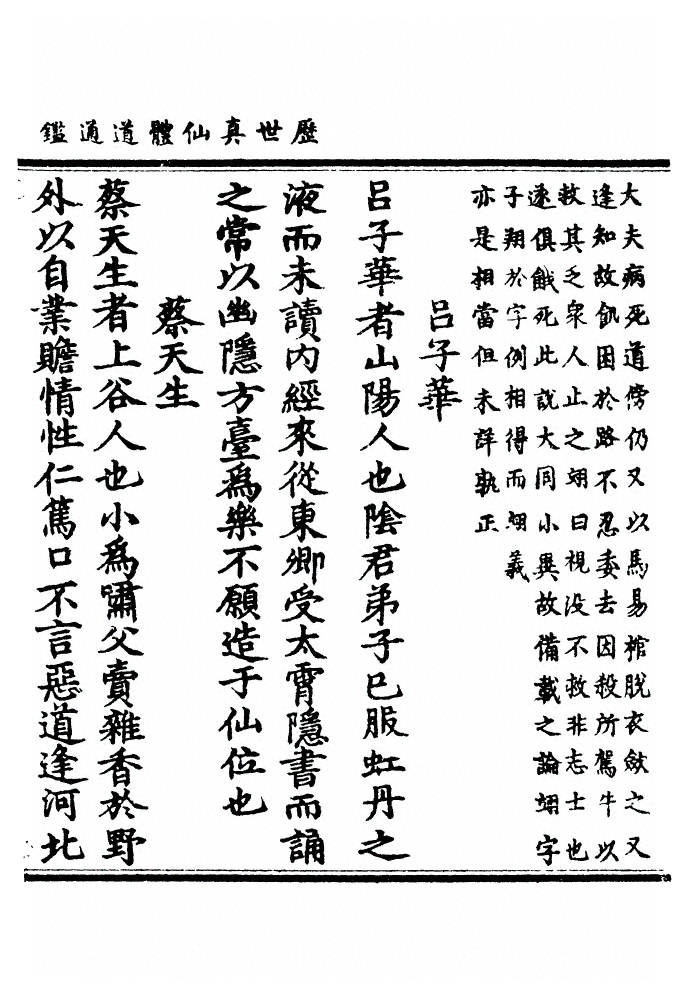 歷世真仙體道通鑑
大夫病死道傍仍又以馬易棺脫衣斂之又
逢知故飢困於路不忍委去因殺所駕牛以
救其乏衆人止之翊曰視没不救非志士也
遂俱餓死此說大同小異故備載之論翊字
子翔於字例相得而翊義
亦是相當但未詳孰正
吕子華
吕子華者山陽人也陰君弟子已服虹丹之
液而未讀内經來從東卿受太霄隱書而誦
之常以幽隱方臺爲樂不願造于仙位也
蔡天生
蔡天生者上谷人也小爲嘯父賣雜香於野
外以自業贍情性仁篤口不言惡道逢河北